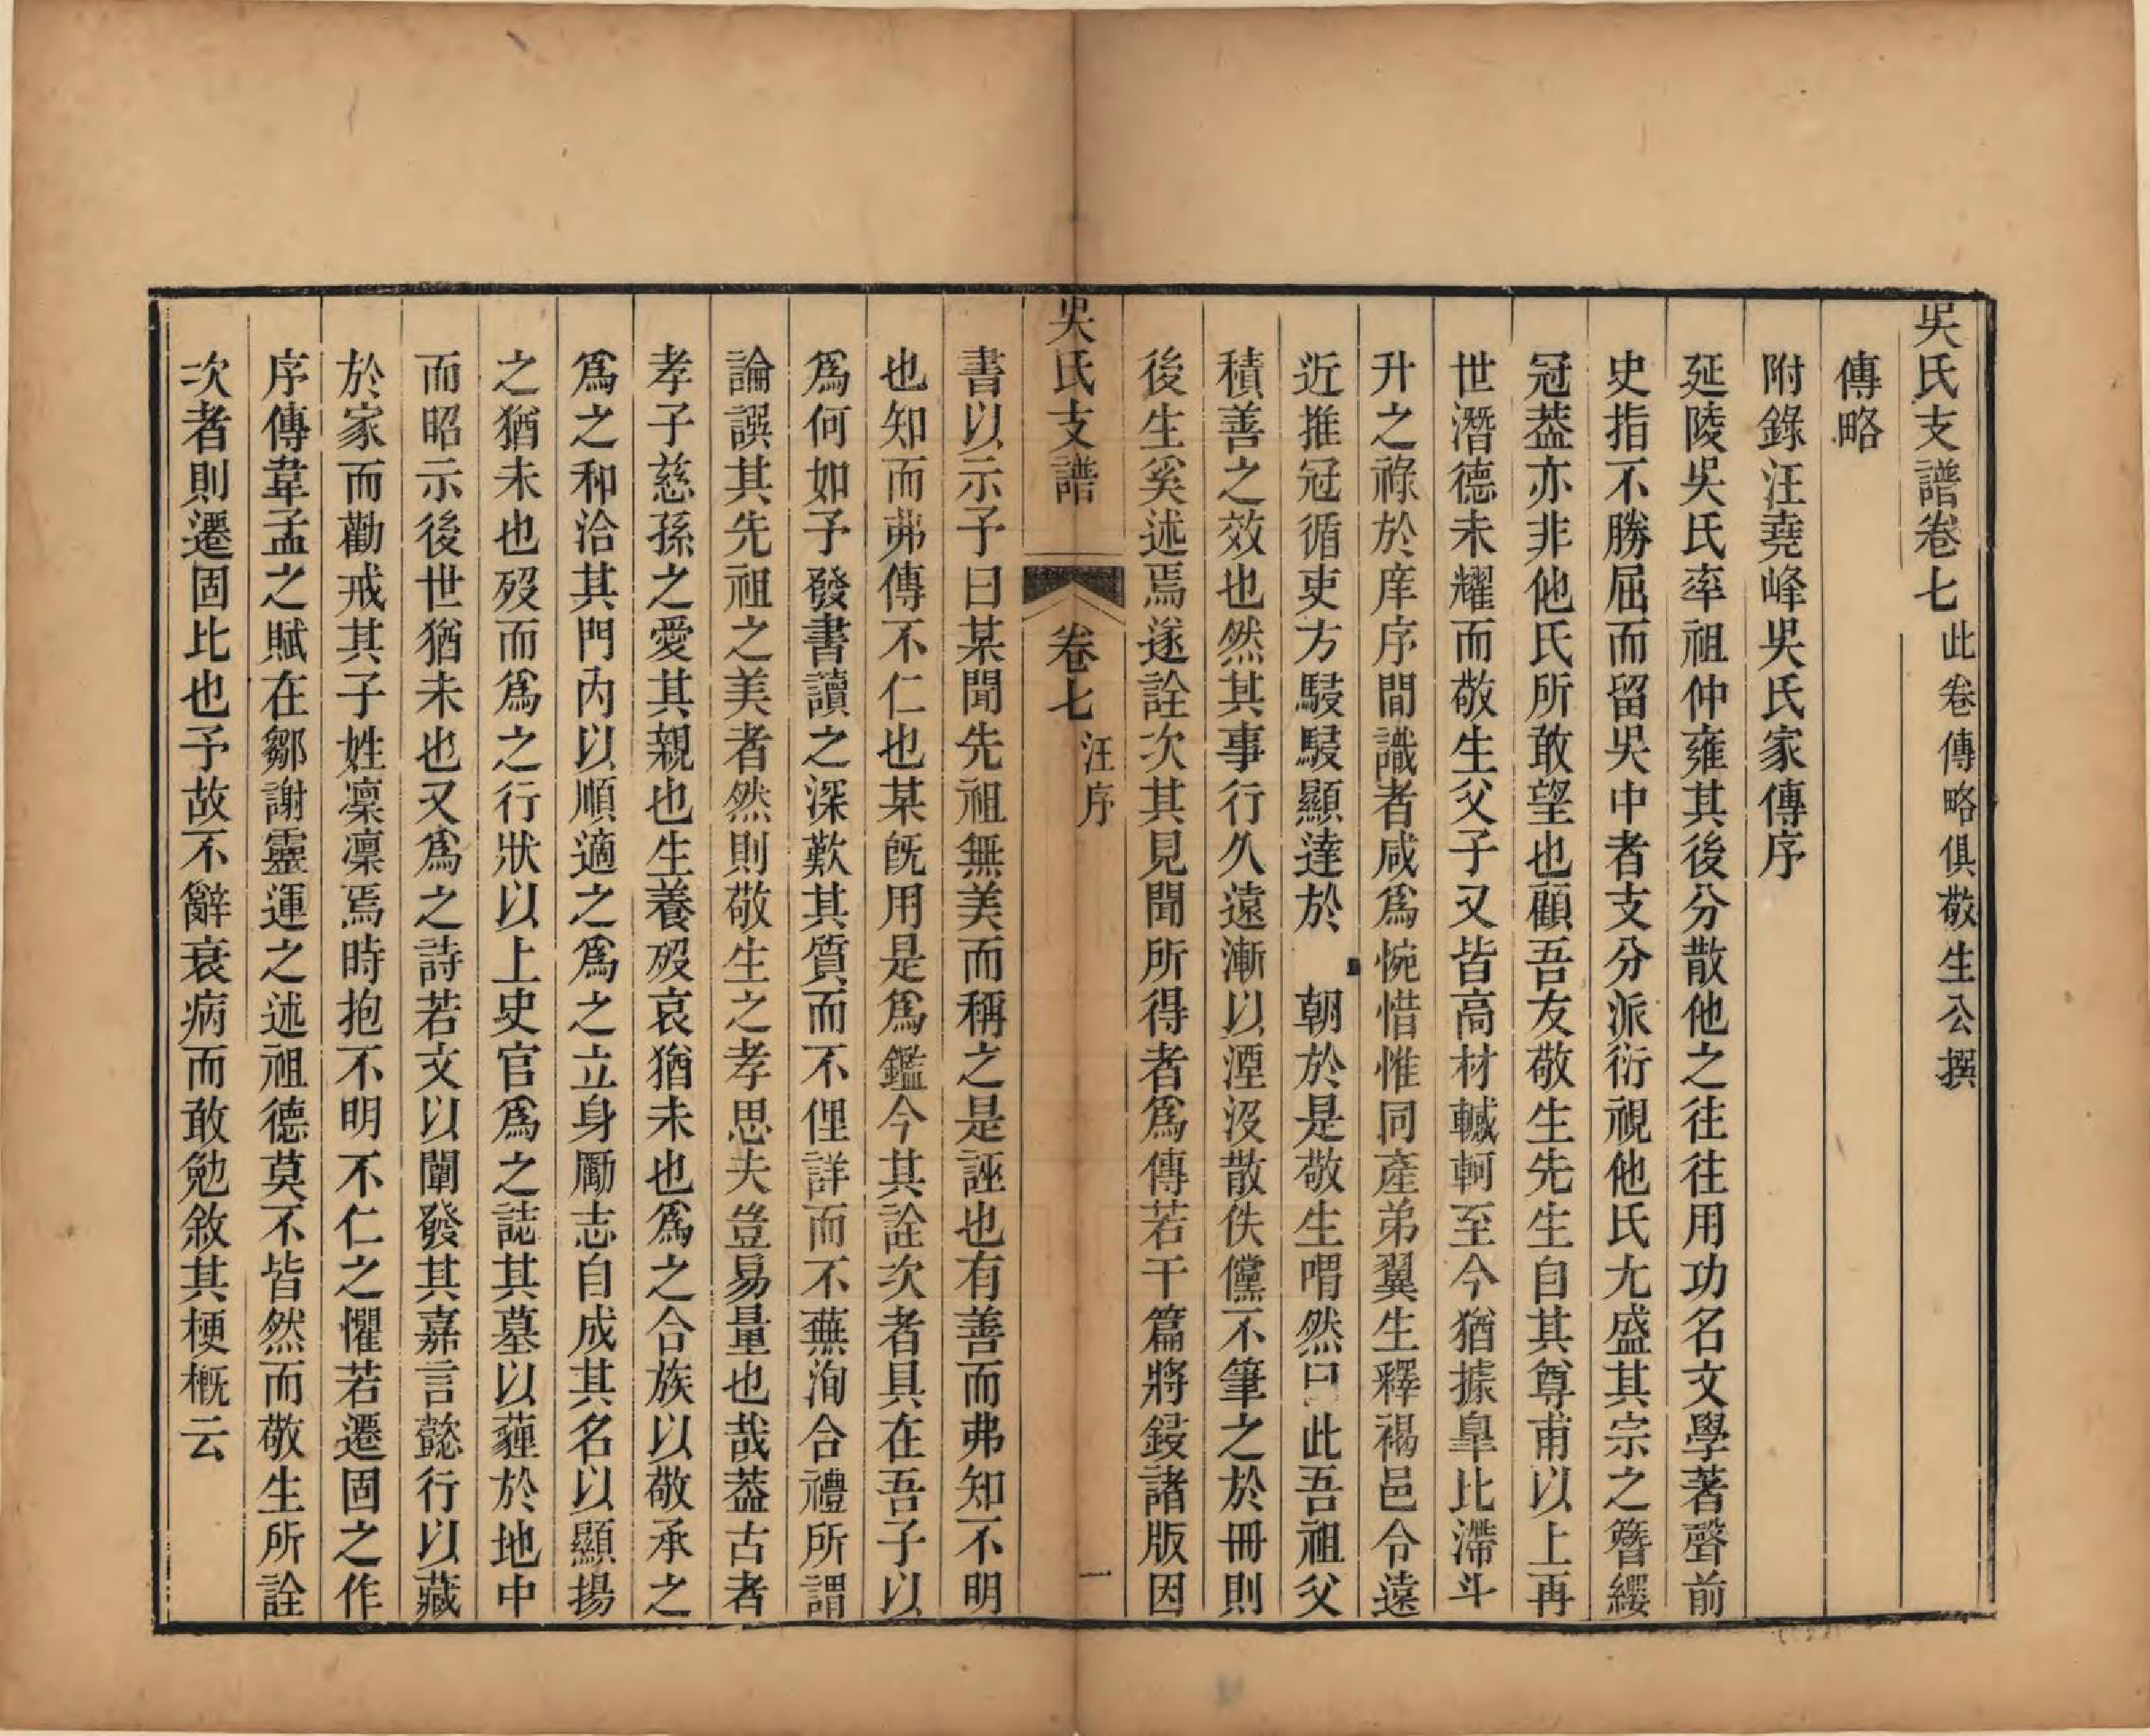 吳氏支譜卷七 此卷傳略俱敬生公撰
傳略
附錄汪堯峰吳氏家傳序
延陵吳氏率祖仲雍其後分散他之往往用功名文學著聲前
史指不勝屈而留吳中者支分派衍視他氏尢盛其宗之簪纓
冠葢亦非他氏所敢望也顧吾友敬生先生自其尊甫以上再
世潛德未耀而敬生父子又皆高材轗軻至今猶據臯比滯斗
升之祿於庠序間識者咸爲惋惜惟同產弟翼生釋褐邑令遠
近推冠循吏方駸駸顯達於 朝於是敬生喟然曰此吾祖父
積善之效也然其事行久遠漸以湮沒散佚儻不筆之於冊則
後生奚述焉遂詮次其見聞所得者爲傳若干篇將鋟諸版因
吳氏支譜 卷七 汪序 一
書以示予曰某聞先祖無美而稱之是誣也有善而弗知不明
也知而弗傳不仁也某旣用是爲鑑今其詮次者具在吾子以
爲何如予發書讀之深歎其質而不俚詳而不蕪洵合禮所謂
論譔其先祖之美者然則敬生之孝思夫豈易量也哉葢古者
孝子慈孫之愛其親也生養歿哀猶未也爲之合族以敬承之
爲之和洽其門內以順適之爲之立身勵志自成其名以顯揚
之猶未也歿而爲之行狀以上史官爲之誌其墓以薶於地中
而昭示後世猶未也又爲之詩若文以闡發其嘉言懿行以藏
於家而勸戒其子姓凜凜焉時抱不明不仁之懼若遷固之作
序傳韋孟之賦在鄒謝靈運之述祖德莫不皆然而敬生所詮
次者則遷固比也予故不辭衰病而敢勉敘其梗概云